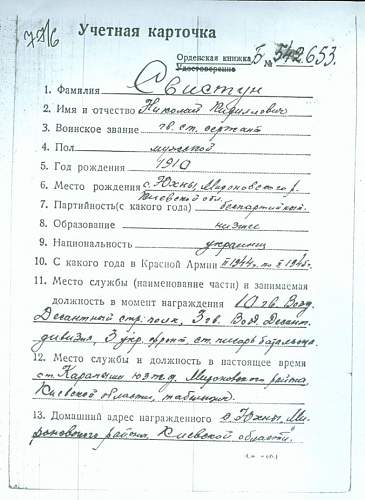 Учетная карточка
Орденская книжка Б № 542653.
Удостоверение
1. Фамилия Свистун
2. Имя и отчество Николай Кириллович
3. Воинское звание гв. ст. сержант
4. Пол мужской
5. Год рождения 1910
6. Место рождения с. Юхны Мироновского р.
Киевской обл.
7. Партийность(с какого года) беспартийный.
8. Образование низшее
9. Национальность украинец
10. С какого года в Красной Армии
11. Место службы (наименование части) и занимаемая
должность в момент награждения 10 гв. Возд.
Десантный стр. полк, 3 гв. Возд. Десант.
дивизия, 3 Укр. фронт, ст. писарь батальона.
12. Место службы и должность в настоящее время
ст. Карапыши Ю.З.ж.д. Мироновского района,
Киевской области, табельщик.
13. Домашний адрес награжденного с. Юхны, Ми-
роновского района, Киевской области.